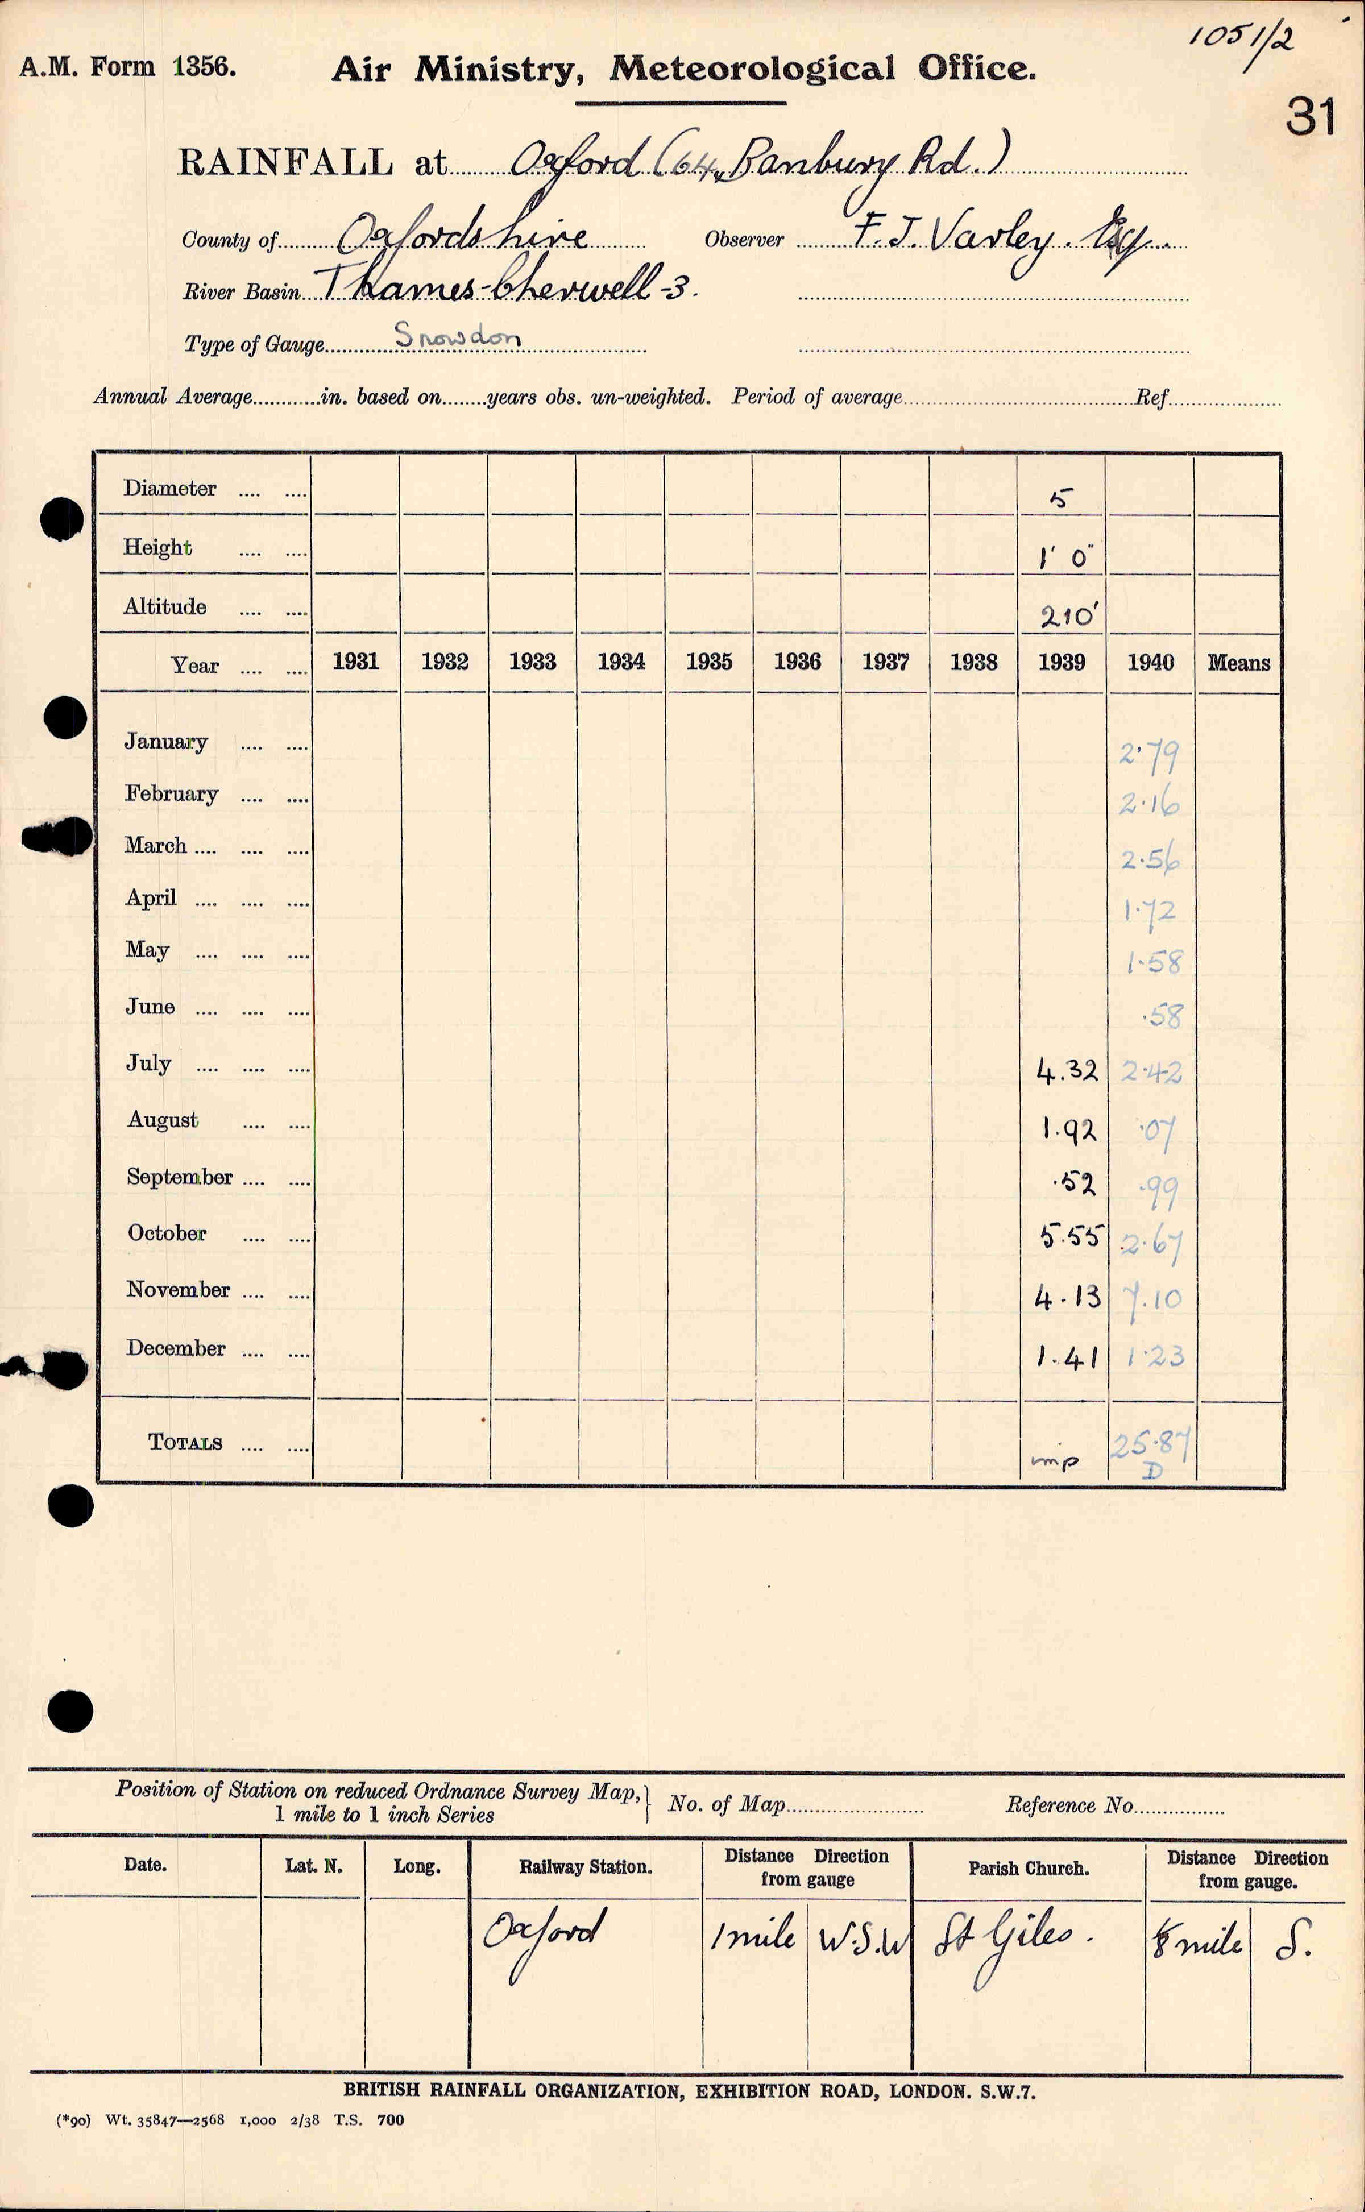 1051/2
A.M. Form 1356. Air Ministry, Meteorological Office.
31
RAINFALL at Oxford (64, Banbury Rd.)
County of Oxfordshire Observer F. J. Varley. Esq.
River Basin Thames-Cherwell-3.
Type of Gauge Snowdon
Annual Average in. based on years obs. un-weighted. Period of average Ref.
Diameter 5
Height 1' 0"
Altitude 210'
Year 1931 1932 1933 1934 1935 1936 1937 1938 1939 1940 Means
January 2.79
February 2.16
March 2.56
April 1.72
May 1.58
June .58
July 4.32 2.42
August 1.92 .07
September .52 .99
October 5.55 2.67
November 4.13 7.10
December 1.41 1.23
TOTALS imp 25.87
D
Position of Station on reduced Ordnance Survey Map, 1 mile to 1 inch Series No. of Map Reference No.
Date. Lat. N. Long. Railway Station. Distance Direction from gauge Parish Church. Distance Direction from gauge.
Oxford 1 mile W.S.W St Giles. 1/8 mile S.
BRITISH RAINFALL ORGANIZATION, EXHIBITION ROAD, LONDON. S.W.7.
(*90) Wt. 35847—2568 1,000 2/38 T.S. 700